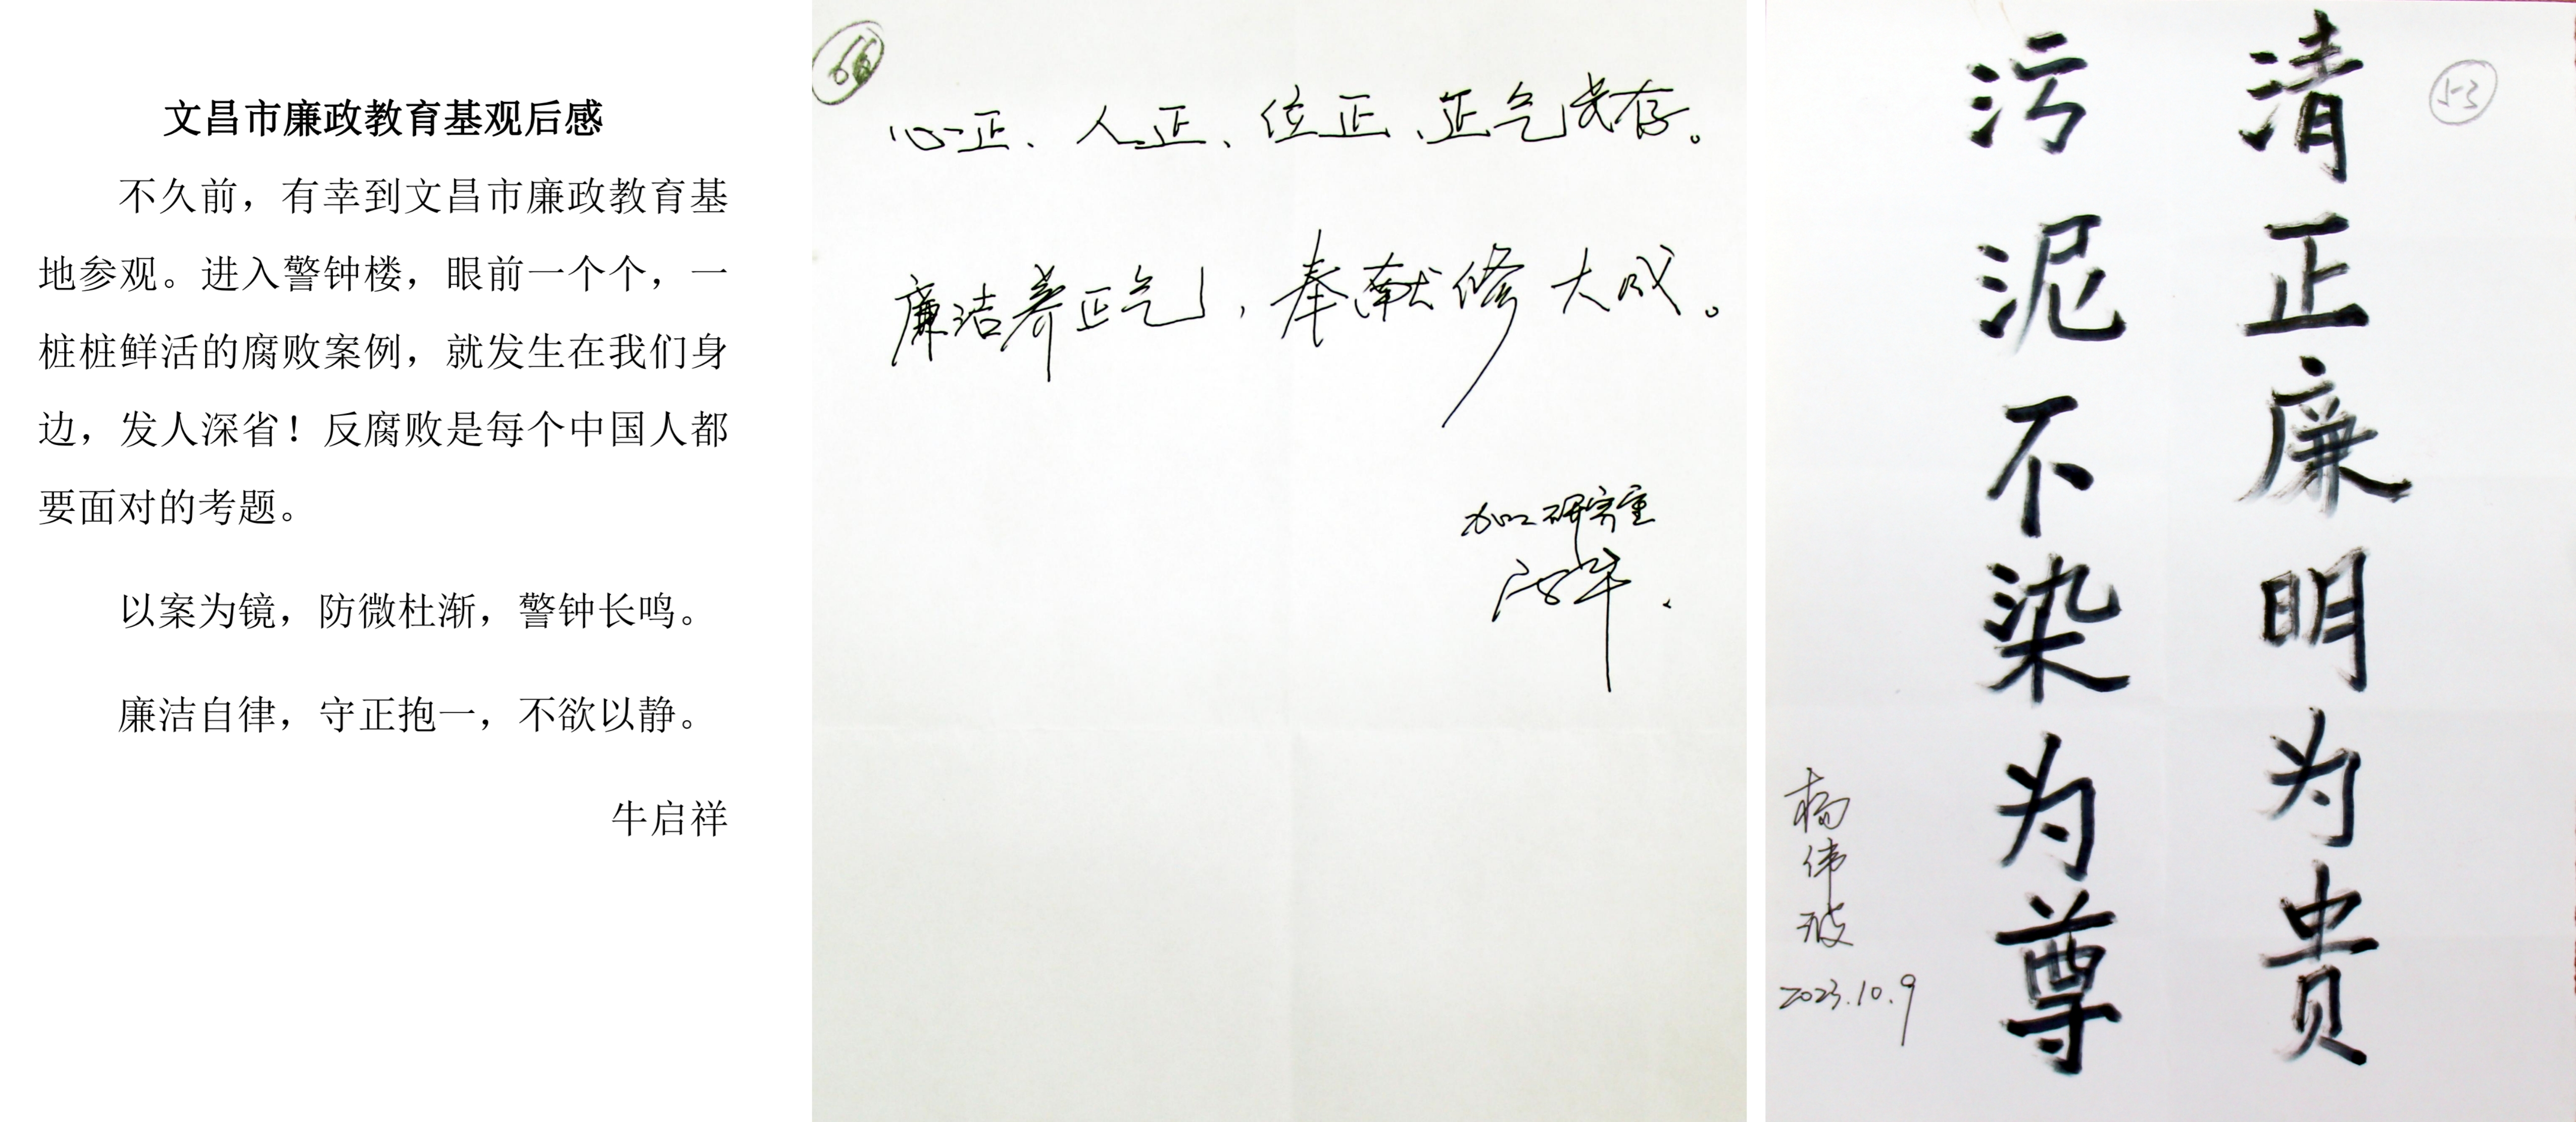 文昌市廉政教育基观后感
不久前，有幸到文昌市廉政教育基
地参观。进入警钟楼，眼前一个个，一
桩桩鲜活的腐败案例，就发生在我们身
边，发人深省！反腐败是每个中国人都
要面对的考题。
以案为镜，防微杜渐，警钟长鸣。
廉洁自律，守正抱一，不欲以静。
牛启祥
心正、人正、位正、正气长存。
廉洁养正气，奉献修大成。
加工研究室
53
清正廉明为贵
污泥不染为尊
杨伟波
2023.10.9